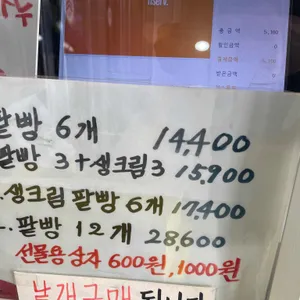 총 금액
할인금액
결제금액
받은금액
팥빵 6개 14,400
팥빵 3+생크림3 15,900
생크림 팥빵 6개 17,400
팥빵 12개 28,600
선물용 상자 600원, 1000원
낱개구매 됩니다